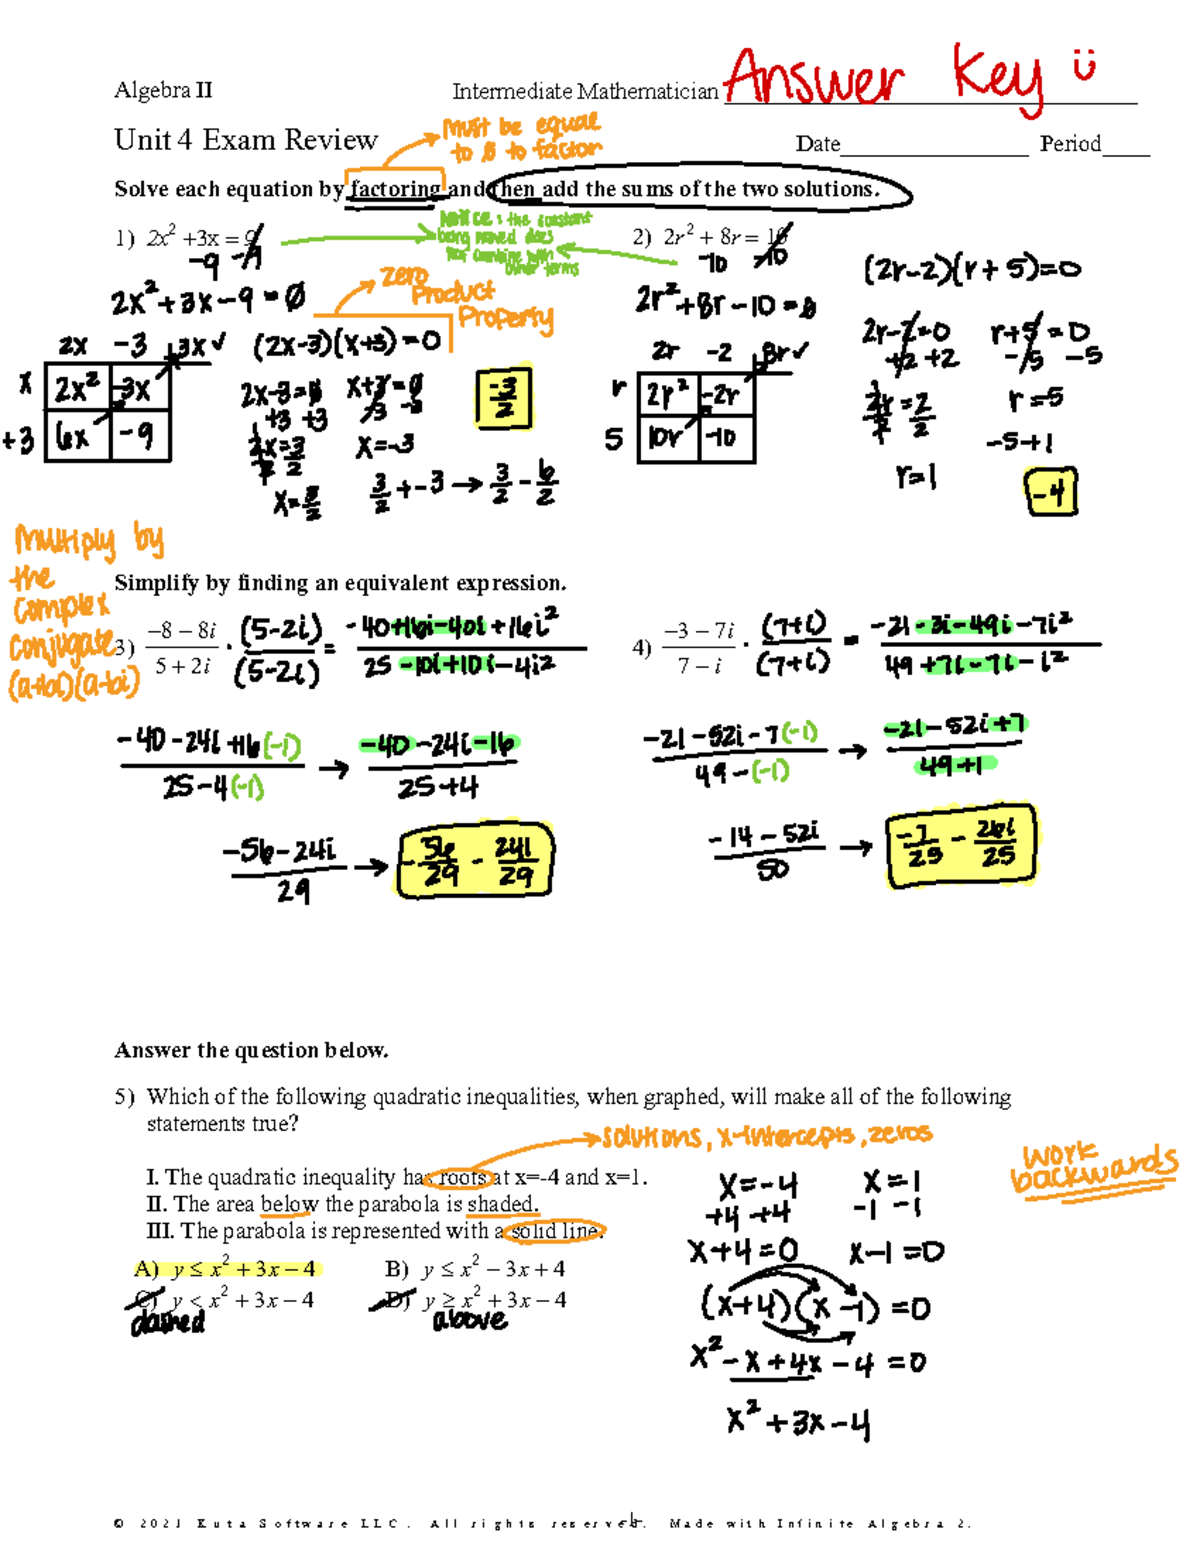 Algebra II Intermediate Mathematician Answer Key
Unit 4 Exam Review Date Period
must be equal
to 0 to factor
Solve each equation by factoring and then add the sums of the two solutions.
1) 2x² +3x = 9
-9 -9
Notice: the constant
being moved does
not combine with
other terms
2) 2r² + 8r = 10
-10 -10
2x² + 3x - 9 = 0
zero
Product
Property
2x -3 +3x ✓
x 2x² -3x
+3 6x -9
(2x-3)(x+3) = 0
2x-3=0 x+3=0
+3 +3 -3 -3
2x = 3 x=-3
2 2
x=3/2
3/2 + -3 → 3/2 - 6/2
-3/2
2r² + 8r - 10 = 0
2r -2 8r ✓
r 2r² -2r
5 10r -10
(2r-2)(r+5)=0
2r-2=0 r+5=0
+2 +2 -5 -5
2r = 2 r=5
2 2 -5+1
r=1
-4
Multiply by
the
complex
conjugate
(a+bi)(a-bi)
Simplify by finding an equivalent expression.
3) -8 - 8i / 5 + 2i · (5-2i) / (5-2i) = -40+16i-40i+16i² / 25-10i+10i-4i²
-40-24i+16(-1) / 25-4(-1) → -40-24i-16 / 25+4
-56-24i / 29 → -56/29 - 24i/29
4) -3 - 7i / 7 - i · (7+i) / (7+i) = -21-3i-49i-7i² / 49+7i-7i-i²
-21-52i-7(-1) / 49-(-1) → -21-52i+7 / 49+1
-14-52i / 50 → -7/25 - 26i/25
Answer the question below.
5) Which of the following quadratic inequalities, when graphed, will make all of the following
statements true?
solutions, x-intercepts, zeros
I. The quadratic inequality has roots at x=-4 and x=1.
II. The area below the parabola is shaded.
III. The parabola is represented with a solid line.
A) y ≤ x² + 3x - 4 B) y ≤ x² - 3x + 4
C) y < x² + 3x - 4 D) y ≥ x² + 3x - 4
dashed above
work
backwards
x=-4 x=1
+4 +4 -1 -1
x+4=0 x-1=0
(x+4)(x-1)=0
x²-x+4x-4=0
x²+3x-4
© 2021 Kuta Software LLC. All rights reserved. Made with Infinite Algebra 2.